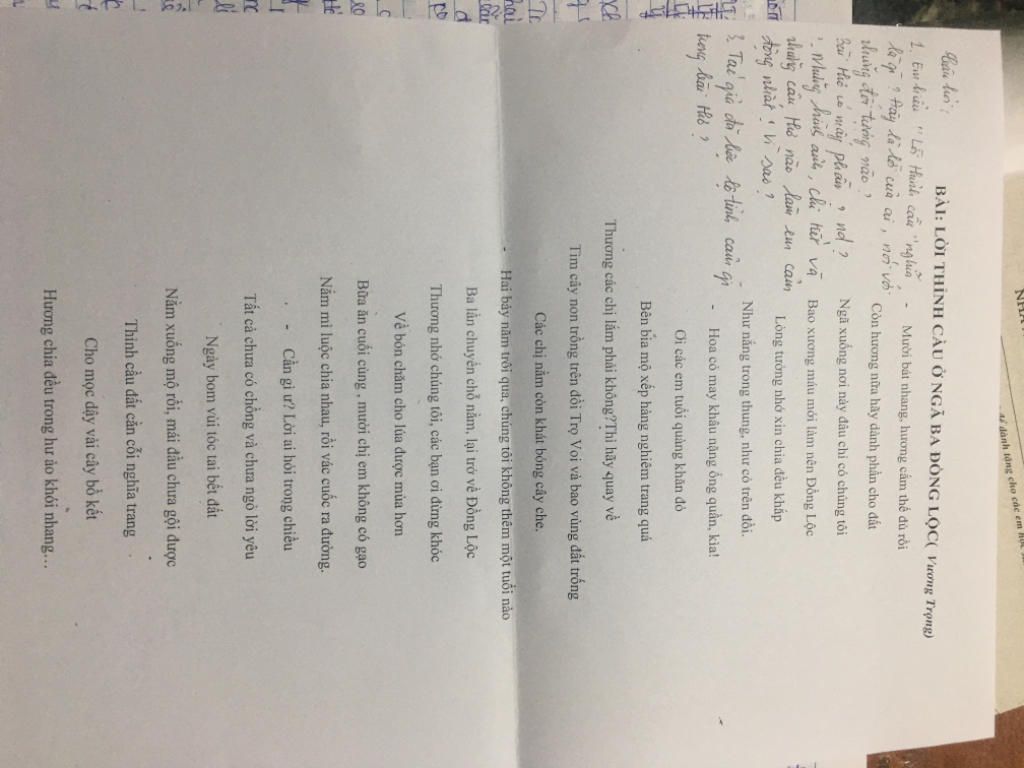 BÀI: LỜI THỈNH CẦU Ở NGÃ BA ĐỒNG LỘC( Vương Trọng)
- Mười bát nhang, hương cắm thế đủ rồi
Còn hương nữa hãy dành phần cho đất
Ngã xuống nơi này đâu chỉ có chúng tôi
Bao xương máu mới làm nên Đồng Lộc
Lòng tưởng nhớ xin chia đều khắp
Như nắng trong thung, như cỏ trên đồi.
- Hoa cỏ may khâu nặng ống quần, kìa!
Ơi các em tuổi quàng khăn đỏ
Bên bia mộ xếp hàng nghiêm trang quá
Thương các chị lắm phải không?Thì hãy quay về
Tìm cây non trồng trên đồi Trọ Voi và bao vùng đất trống
Các chị nằm còn khát bóng cây che.
- Hai bảy năm trôi qua, chúng tôi không thêm một tuổi nào
Ba lần chuyển chỗ nằm, lại trở về Đồng Lộc
Thương nhớ chúng tôi, các bạn ơi đừng khóc
Về bón chăm cho lúa được mùa hơn
Bữa ăn cuối cùng , mười chị em không có gạo
Nắm mì luộc chia nhau, rồi vác cuốc ra đường.
- Cần gì ư? Lời ai hỏi trong chiều
Tất cả chưa có chồng và chưa ngỏ lời yêu
Ngày bom vùi tóc tai bết đất
Nằm xuống mộ rồi, mái đầu chưa gội được
Thỉnh cầu đất cằn cỗi nghĩa trang
Cho mọc dậy vài cây bồ kết
Hương chia đều trong hư ảo khói nhang…
Câu hỏi:
1. Em hiểu "Lời thỉnh cầu" nghĩa
là gì? Đây là lời của ai, nói với
những đối tượng nào?
Bài thơ có mấy phần, nd?
. Những hình ảnh, chi tiết và
những câu thơ nào làm em cảm
động nhất? Vì sao?
3. Tác giả đã bộc lộ tình cảm gì
trong bài thơ?
để dành tặng cho các em